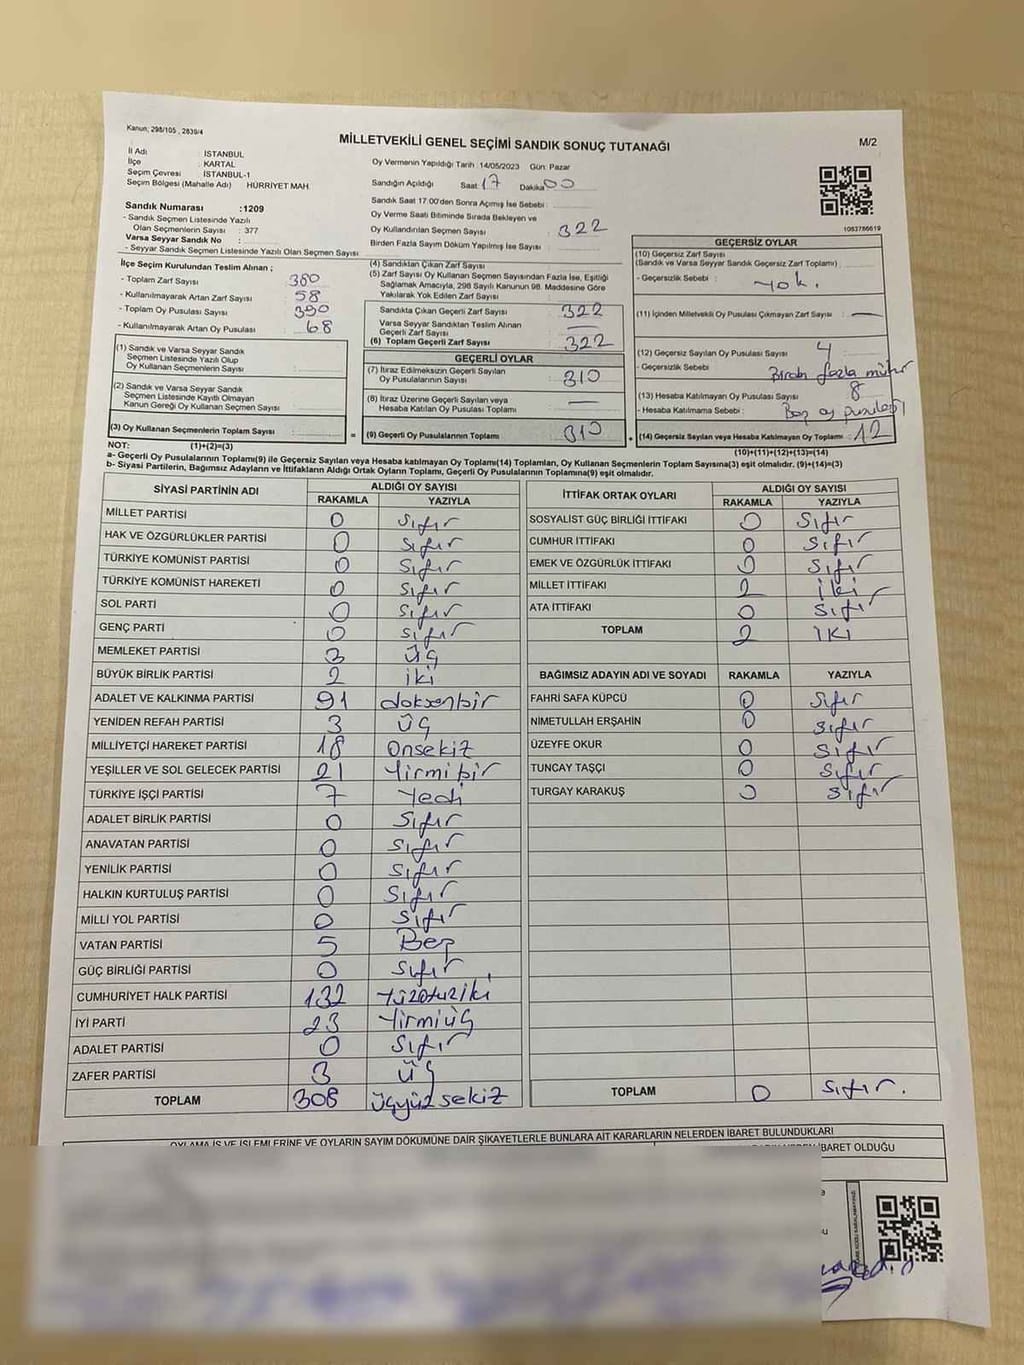 Kanun; 298/105 , 2839/4
MİLLETVEKİLİ GENEL SEÇİMİ SANDIK SONUÇ TUTANAĞI
M/2
İl Adı : İSTANBUL
İlçe : KARTAL
Seçim Çevresi : İSTANBUL-1
Seçim Bölgesi (Mahalle Adı) HÜRRİYET MAH
Sandık Numarası :1209
- Sandık Seçmen Listesinde Yazılı
Olan Seçmenlerin Sayısı : 377
Varsa Seyyar Sandık No :
- Seyyar Sandık Seçmen Listesinde Yazılı Olan Seçmen Sayısı :
Oy Vermenin Yapıldığı Tarih :14/05/2023 Gün: Pazar
Sandığın Açıldığı Saat 17 Dakika 00
Sandık Saat 17.00'den Sonra Açılmış İse Sebebi :
Oy Verme Saati Bitiminde Sırada Bekleyen ve
Oy Kullandırılan Seçmen Sayısı : 322
Birden Fazla Sayım Döküm Yapılmış İse Sayısı :
1063786619
İlçe Seçim Kurulundan Teslim Alınan ;
- Toplam Zarf Sayısı : 380
- Kullanılmayarak Artan Zarf Sayısı : 58
- Toplam Oy Pusulası Sayısı : 390
- Kullanılmayarak Artan Oy Pusulası : 68
(1) Sandık ve Varsa Seyyar Sandık
Seçmen Listesinde Yazılı Olup
Oy Kullanan Seçmenlerin Sayısı :
(2) Sandık ve Varsa Seyyar Sandık
Seçmen Listesinde Kayıtlı Olmayan
Kanun Gereği Oy Kullanan Seçmen Sayısı :
(3) Oy Kullanan Seçmenlerin Toplam Sayısı :
(4) Sandıktan Çıkan Zarf Sayısı :
(5) Zarf Sayısı Oy Kullanan Seçmen Sayısından Fazla İse, Eşitliği
Sağlamak Amacıyla, 298 Sayılı Kanunun 98. Maddesine Göre
Yakılarak Yok Edilen Zarf Sayısı :
Sandıkta Çıkan Geçerli Zarf Sayısı : 322
Varsa Seyyar Sandıktan Teslim Alınan
Geçerli Zarf Sayısı : —
(6) Toplam Geçerli Zarf Sayısı : 322
GEÇERLİ OYLAR
(7) İtiraz Edilmeksizin Geçerli Sayılan
Oy Pusulalarının Sayısı : 310
(8) İtiraz Üzerine Geçerli Sayılan veya
Hesaba Katılan Oy Pusulası Toplamı : —
= (9) Geçerli Oy Pusulalarının Toplamı : 310
GEÇERSİZ OYLAR
(10) Geçersiz Zarf Sayısı
(Sandık ve Varsa Seyyar Sandık Geçersiz Zarf Toplamı) :
- Geçersizlik Sebebi : Yok.
(11) İçinden Milletvekili Oy Pusulası Çıkmayan Zarf Sayısı : —
(12) Geçersiz Sayılan Oy Pusulası Sayısı : 4
- Geçersizlik Sebebi : Birden fazla mühür
(13) Hesaba Katılmayan Oy Pusulası Sayısı : 8
- Hesaba Katılmama Sebebi : Boş oy pusulası
+ (14) Geçersiz Sayılan veya Hesaba Katılmayan Oy Toplamı : 12
NOT: (1)+(2)=(3)
(10)+(11)+(12)+(13)=(14)
a- Geçerli Oy Pusulalarının Toplamı(9) ile Geçersiz Sayılan veya Hesaba katılmayan Oy Toplamı(14) Toplamları, Oy Kullanan Seçmenlerin Toplam Sayısına(3) eşit olmalıdır. (9)+(14)=(3)
b- Siyasi Partilerin, Bağımsız Adayların ve İttifakların Aldığı Ortak Oyların Toplamı, Geçerli Oy Pusulalarının Toplamına(9) eşit olmalıdır.
SİYASİ PARTİNİN ADI ALDIĞI OY SAYISI
RAKAMLA YAZIYLA
MİLLET PARTİSİ 0 Sıfır
HAK VE ÖZGÜRLÜKLER PARTİSİ 0 Sıfır
TÜRKİYE KOMÜNİST PARTİSİ 0 Sıfır
TÜRKİYE KOMÜNİST HAREKETİ 0 Sıfır
SOL PARTİ 0 Sıfır
GENÇ PARTİ 0 Sıfır
MEMLEKET PARTİSİ 3 üç
BÜYÜK BİRLİK PARTİSİ 2 iki
ADALET VE KALKINMA PARTİSİ 91 doksanbir
YENİDEN REFAH PARTİSİ 3 üç
MİLLİYETÇİ HAREKET PARTİSİ 18 Onsekiz
YEŞİLLER VE SOL GELECEK PARTİSİ 21 Yirmibir
TÜRKİYE İŞÇİ PARTİSİ 7 Yedi
ADALET BİRLİK PARTİSİ 0 Sıfır
ANAVATAN PARTİSİ 0 Sıfır
YENİLİK PARTİSİ 0 Sıfır
HALKIN KURTULUŞ PARTİSİ 0 Sıfır
MİLLİ YOL PARTİSİ 0 Sıfır
VATAN PARTİSİ 5 Beş
GÜÇ BİRLİĞİ PARTİSİ 0 Sıfır
CUMHURİYET HALK PARTİSİ 132 Yüzotuziki
İYİ PARTİ 23 Yirmiüç
ADALET PARTİSİ 0 Sıfır
ZAFER PARTİSİ 3 üç
TOPLAM 308 üçyüzsekiz
İTTİFAK ORTAK OYLARI ALDIĞI OY SAYISI
RAKAMLA YAZIYLA
SOSYALİST GÜÇ BİRLİĞİ İTTİFAKI 0 Sıfır
CUMHUR İTTİFAKI 0 Sıfır
EMEK VE ÖZGÜRLÜK İTTİFAKI 0 Sıfır
MİLLET İTTİFAKI 2 iki
ATA İTTİFAKI 0 Sıfır
TOPLAM 2 İKİ
BAĞIMSIZ ADAYIN ADI VE SOYADI RAKAMLA YAZIYLA
FAHRİ SAFA KÜPCÜ 0 Sıfır
NİMETULLAH ERŞAHİN 0 Sıfır
ÜZEYFE OKUR 0 Sıfır
TUNCAY TAŞÇI 0 Sıfır
TURGAY KARAKUŞ 0 Sıfır
TOPLAM 0 Sıfır.
OYLAMA İŞ VE İŞLEMLERİNE VE OYLARIN SAYIM DÖKÜMÜNE DAİR ŞİKAYETLERLE BUNLARA AİT KARARLARIN NELERDEN İBARET BULUNDUKLARI
İBARET OLDUĞU